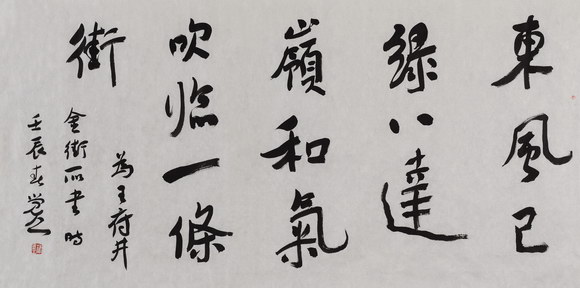 東風已
綠八達
嶺和氣
吹臨一條
街
為王府井
金街所書時
壬辰春